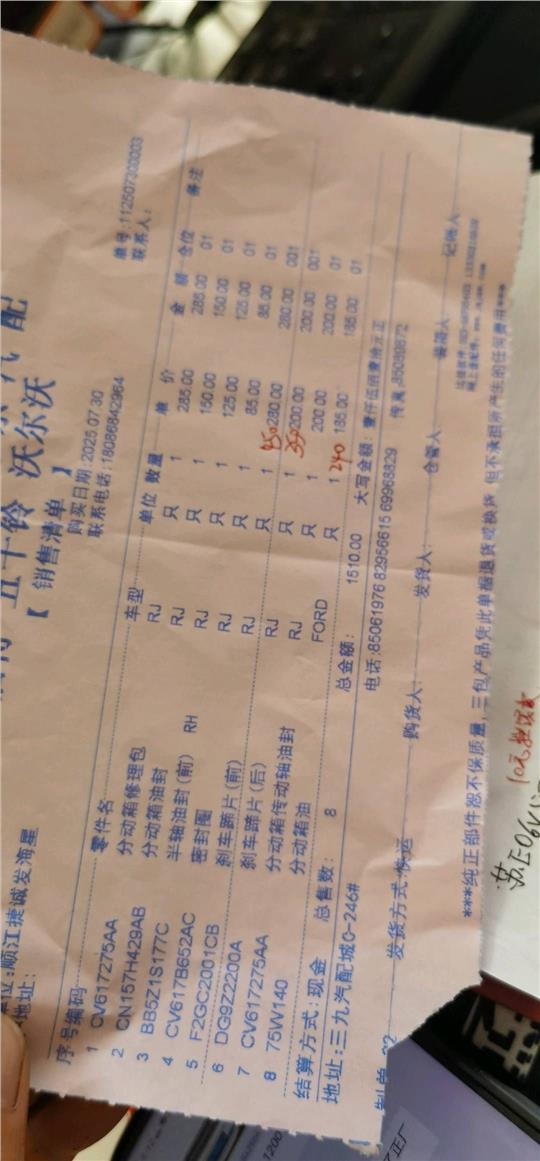 五十铃 沃尔沃
【 销售清单 】
编号:112507303003
单位:顺江捷诚发海星
购买日期:2025 07 30
联系人:
地址:
联系电话:18086842964
序号 编码 零件名 车型 单位 数量 单 价 金 额 仓位 备注
1 CV617275AA 分动箱修理包 RJ 只 1 285.00 285.00 01
2 CN157H428AB 分动箱油封 RJ 只 1 150.00 150.00 01
3 BB5Z1S177C 半轴油封(前) RH RJ 只 1 125.00 125.00 01
4 CV617B652AC 密封圈 RJ 只 1 85.00 85.00 01
5 F2GC2001CB 刹车蹄片(前) RJ 只 1 450 280.00 280.00 001
6 DG9Z2200A 刹车蹄片(后) RJ 只 1 350 200.00 200.00 001
7 CV617275AA 分动箱传动轴油封 RJ 只 1 200.00 200.00 01
8 75W140 分动箱油 FORD 只 1 240 185.00 185.00 01
结算方式:现金 总售数: 8 总金额: 1510.00 大写金额: 壹仟伍佰壹拾元正
地址:三九汽配城G-246# 电话:85061976 82956615 69968829 传真:
制单 发货方式:快运 购货人: 发货人: 仓管人 记帐人
***纯正部件恕不保质量,三包产品凭此单据退货或换货,但不承担所产生的任何费用***